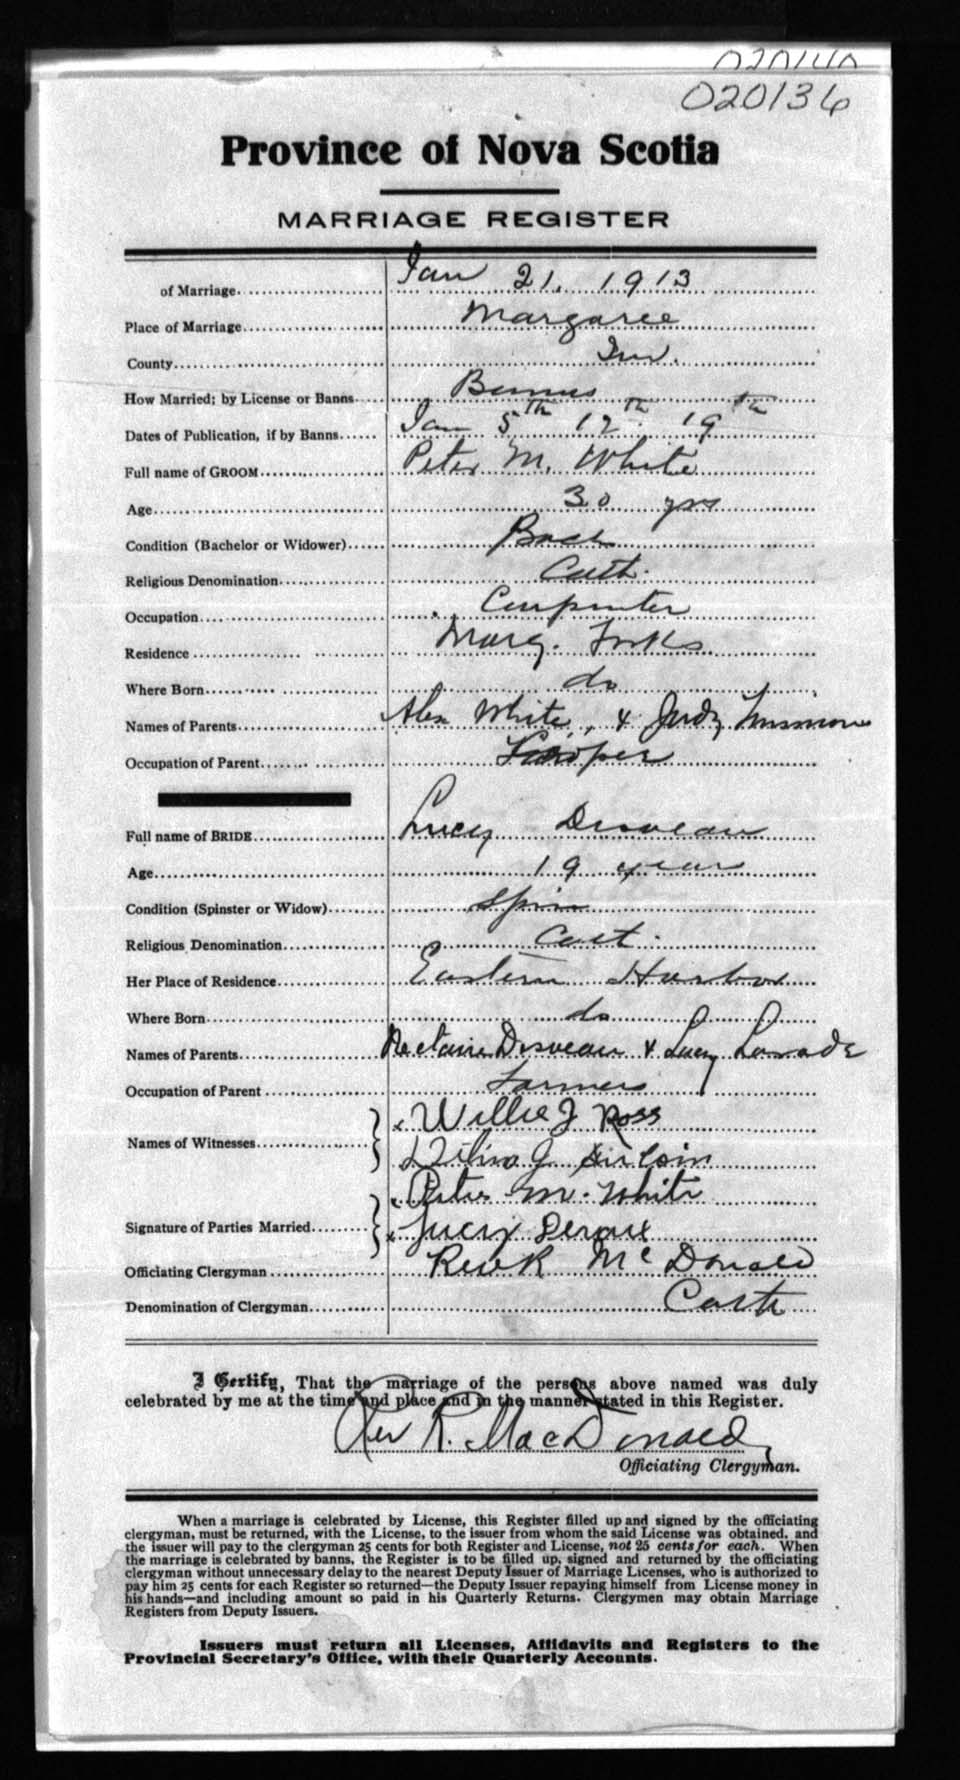 020136
Province of Nova Scotia
MARRIAGE REGISTER
of Marriage Jan 21, 1913
Place of Marriage Margaree
County Inv.
How Married; by License or Banns Banns
Dates of Publication, if by Banns Jan 5th 12th 19th
Full name of GROOM Peter M. White
Age 30 yrs
Condition (Bachelor or Widower) Bach
Religious Denomination Cath.
Occupation Carpenter
Residence Marg. Forks
Where Born do
Names of Parents Alex White, & Judy
Occupation of Parent
Full name of BRIDE Lucy Desveau
Age 19 year
Condition (Spinster or Widow) Spin
Religious Denomination Cact.
Her Place of Residence Eastern Harbor
Where Born do
Names of Parents Desveau & Lucy
Occupation of Parent Farmer
Names of Witnesses x Willie J Ross
J
Signature of Parties Married x Peter M. White
x Lucy
Officiating Clergyman Rev R McDonald
Denomination of Clergyman Cath
I Certify, That the marriage of the persons above named was duly
celebrated by me at the time and place and in the manner stated in this Register.
Rev R. MacDonald
Officiating Clergyman.
When a marriage is celebrated by License, this Register filled up and signed by the officiating
clergyman, must be returned, with the License, to the issuer from whom the said License was obtained, and
the issuer will pay to the clergyman 25 cents for both Register and License, not 25 cents for each. When
the marriage is celebrated by banns, the Register is to be filled up, signed and returned by the officiating
clergyman without unnecessary delay to the nearest Deputy Issuer of Marriage Licenses, who is authorized to
pay him 25 cents for each Register so returned—the Deputy Issuer repaying himself from License money in
his hands—and including amount so paid in his Quarterly Returns. Clergymen may obtain Marriage
Registers from Deputy Issuers.
Issuers must return all Licenses, Affidavits and Registers to the
Provincial Secretary's Office, with their Quarterly Accounts.